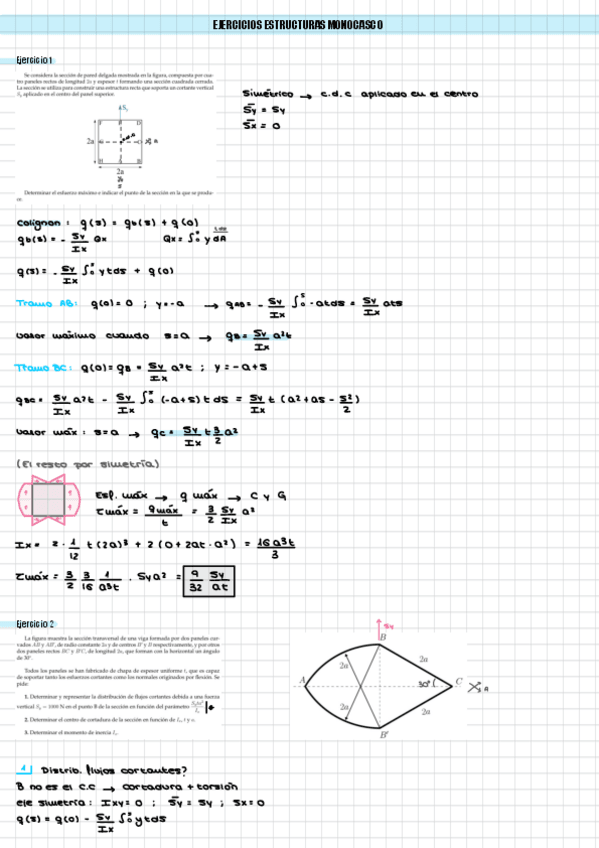 EJERCICIOS ESTRUCTURAS MONOCASCO
Ejercicio 1
Se considera la sección de pared delgada mostrada en la figura, compuesta por cua-
tro paneles rectos de longitud 2a y espesor t formando una sección cuadrada cerrada.
La sección se utiliza para construir una estructura recta que soporta un cortante vertical
Sy aplicado en el centro del panel superior.
Simétrico → c.d.c aplicado en el centro
S̄y = Sy
S̄x = 0
Sy
2a
2a
Determinar el esfuerzo máximo e indicar el punto de la sección en la que se produ-
ce.
Colignon : q(s) = qb(s) + q(0)
qb(s) = - Sy/Ix Qx Qx = ∫₀ˢ y dA
q(s) = - Sy/Ix ∫₀ˢ ytds + q(0)
Tramo AB: q(0) = 0 ; y = -a → qAB = - Sy/Ix ∫₀ˢ -atds = Sy/Ix ats
valor máximo cuando s=a → qB = Sy/Ix a²t
Tramo BC: q(0) = qB = Sy/Ix a²t ; y = -a+s
qBC = Sy/Ix a²t - Sy/Ix ∫₀ˢ (-a+s) t ds = Sy/Ix t (a² + as - s²/2)
valor máx : s=a → qC = Sy/Ix t 3/2 a²
(El resto por simetría)
Esf. máx → q máx → C y G
τmáx = qmáx/t = 3/2 Sy/Ix a²
Ix = 2 · 1/12 t (2a)³ + 2 (0 + 2at · a²) = 16a³t/3
τmáx = 3/2 3/16 1/a³t · Sya² = 9/32 Sy/at
Ejercicio 2
La figura muestra la sección transversal de una viga formada por dos paneles cur-
vados AB y AB', de radio constante 2a y de centros B' y B respectivamente, y por otros
dos paneles rectos BC y B'C, de longitud 2a, que forman con la horizontal un ángulo
de 30°.
Todos los paneles se han fabricado de chapa de espesor uniforme t, que es capaz
de soportar tanto los esfuerzos cortantes como los normales originados por flexión. Se
pide:
1. Determinar y representar la distribución de flujos cortantes debida a una fuerza
vertical Sy = 1000 N en el punto B de la sección en función del parámetro
2. Determinar el centro de cortadura de la sección en función de Ix, t y a.
3. Determinar el momento de inercia Ix.
Sy
B
2a
2a
A
30°
C
2a
2a
B'
1 Distrib. flujos cortantes?
B no es el c.c → cortadura + torsión
eje simetría : Ixy = 0 ; S̄y = Sy ; Sx = 0
q(s) = q(0) - Sy/Ix ∫₀ˢ ytds